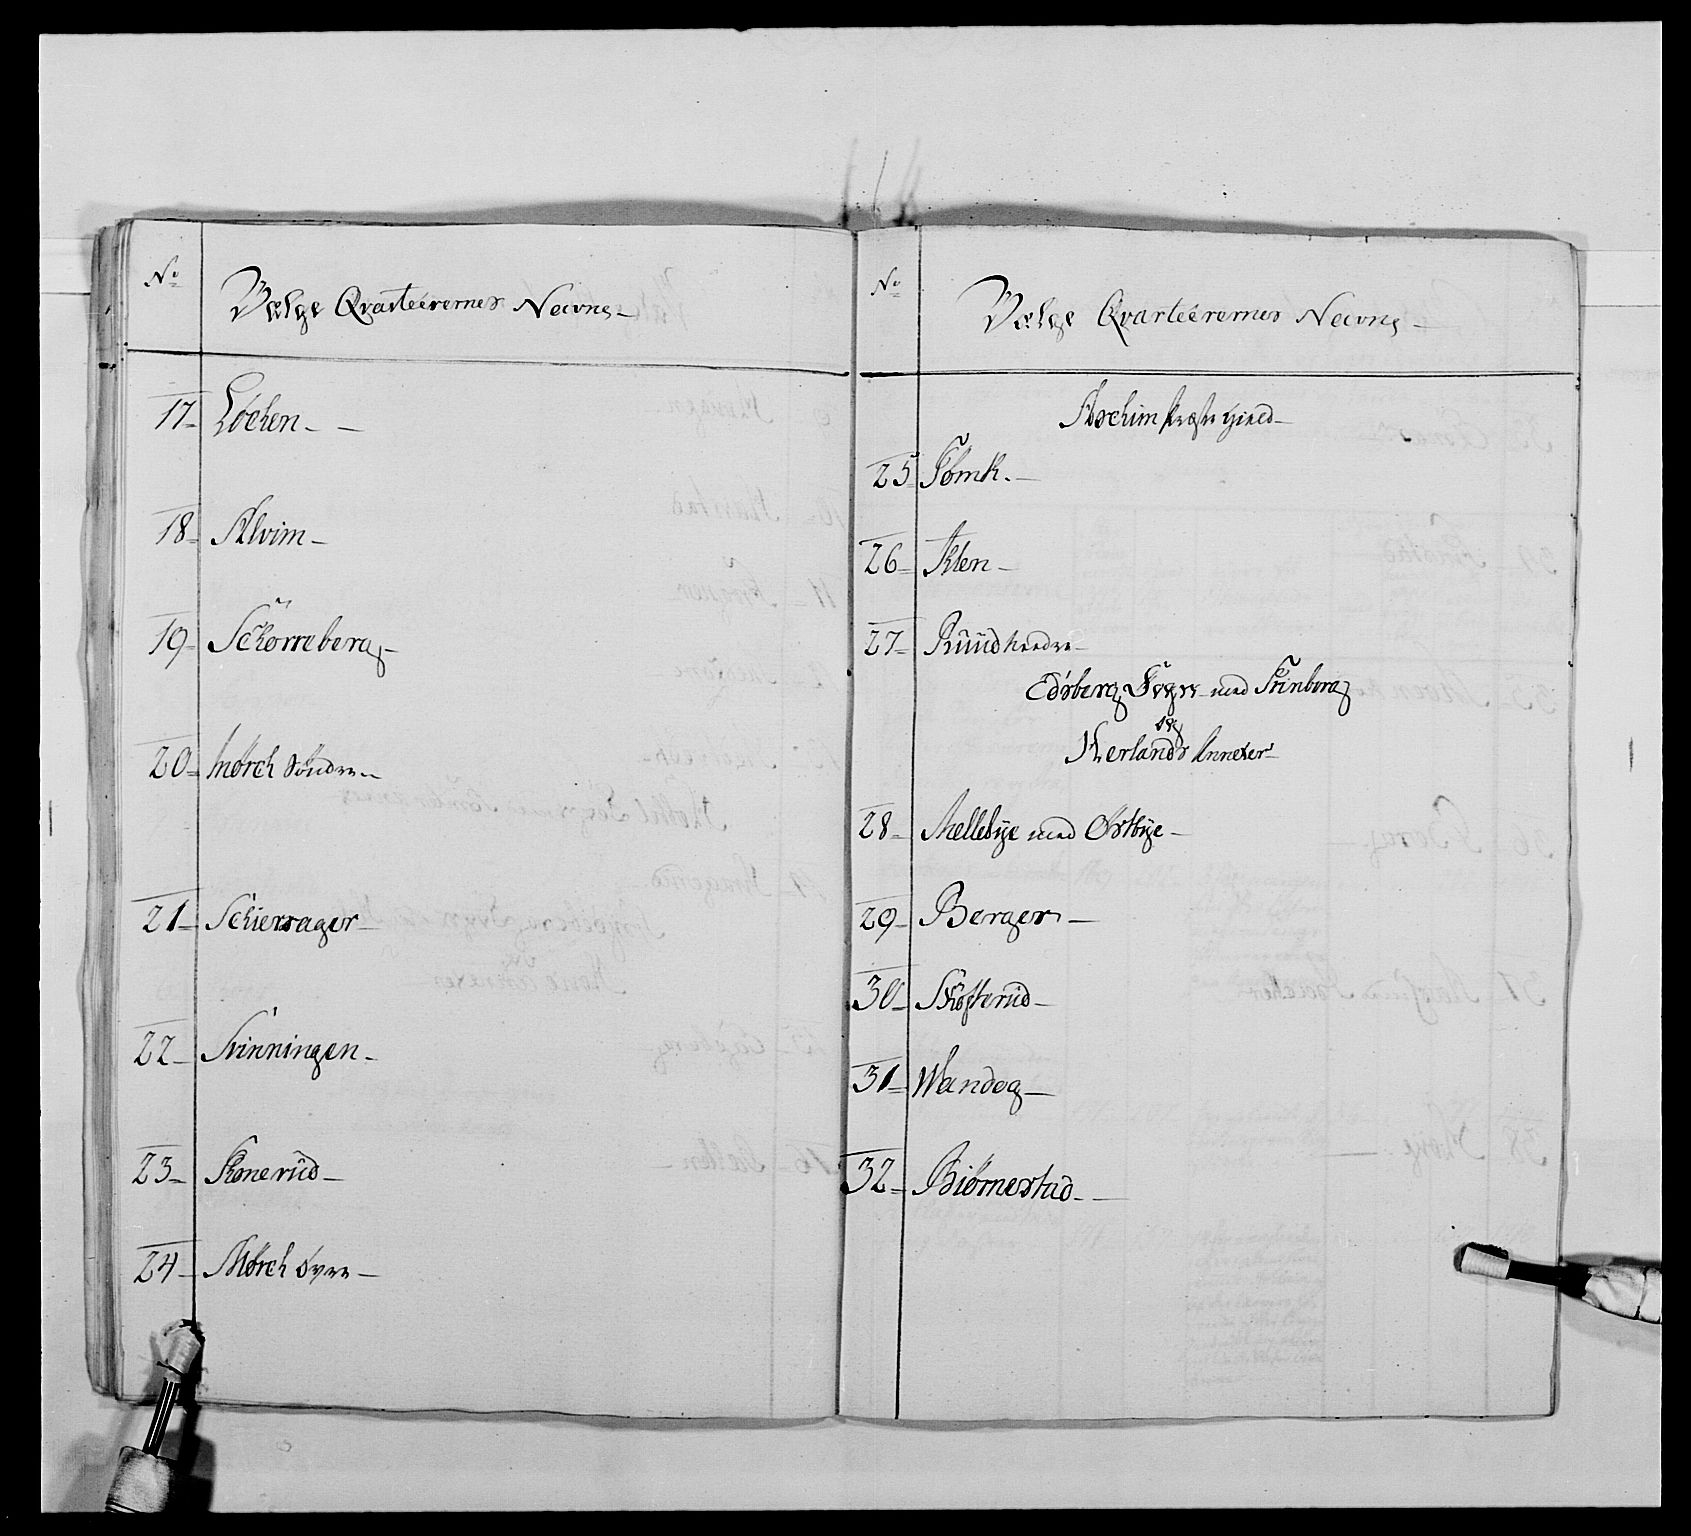 No
Vælge Qvarteerernes Nevne
17 Løchen
18 Alvim
19 Schørreberg
20 Mørch Søndre
21 Schiersager
22 Svinningen
23 Skonerud
24 Mørch øvre
No
Vælge Qvarteerernes Nevne
Aschim Præste Gield
25 Tømk.
26 Klen
27 Ruud
Edsberg Sogn med Trinborg
og
Herlands Annexer
28 Mellebye med Østbye
29 Berger
30 Skofterud
31 Wandog
32 Biørnestad